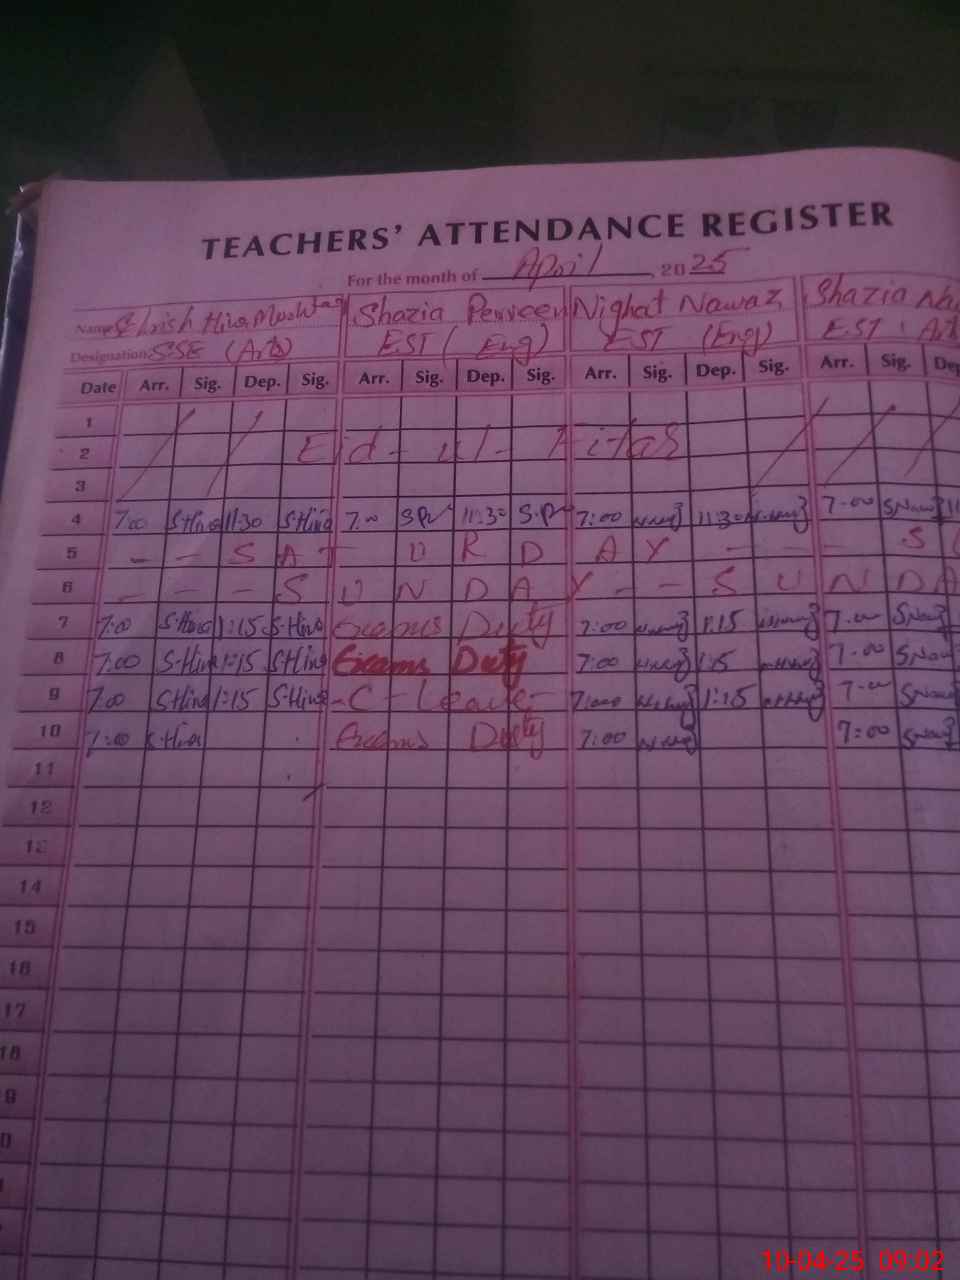 TEACHERS' ATTENDANCE REGISTER
For the month of April, 2025
Name Hira Mushtaq Shazia Perveen Nighat Nawaz Shazia Na
Designation SSE (Arts) EST (Eng) EST (Eng) EST
Date Arr. Sig. Dep. Sig. Arr. Sig. Dep. Sig. Arr. Sig. Dep. Sig. Arr. Sig. Dep
1
2 Eid-ul-Fitar
3
4 7:00 S-Hira 11:30 S-Hira 7:00 11:30 7:00 11:30 7-00 SNawaz 11
5 - - SATURDAY - - - S
6 - - - SUNDAY - - SUNDA
7 7:00 S-Hira 1:15 S-Hira Exams Duty 7:00 1:15 7-00 SNawaz
8 7:00 S-Hira 1:15 S-Hira Exams Duty 7:00 1:15 7-00 SNawaz
9 7:00 S-Hira 1:15 S-Hira -C-Leave- 7:00 1:15 7-00 SNawaz
10 7:00 S-Hira Exams Duty 7:00 7:00 SNawaz
11
12
13
14
15
16
17
18
9
0
10-04-25 09:02